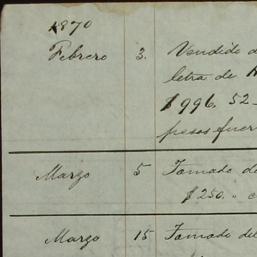 1870
Febrero 3. Vendido
letra de
$996. 52
pesos fuer
Marzo 5 Tomado de
$250.
Marzo 15 Tomado del